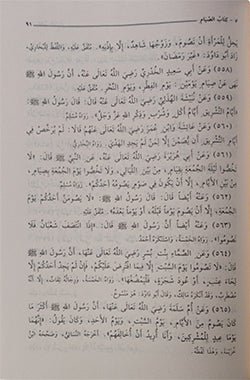 ٧ - كِتَابُ الصِّيَامِ ٩١
يَحِلُّ لِلْمَرْأَةِ أَنْ تَصُومَ، وَزَوْجُهَا شَاهِدٌ، إِلَّا بِإِذْنِهِ». مُتَّفَقٌ عَلَيْهِ، وَاللَّفْظُ لِلْبُخَارِيِّ،
زَادَ أَبُو دَاوُدَ: «غَيْرَ رَمَضَانَ».
(٥٥٨) وَعَنْ أَبِي سَعِيدٍ الْخُدْرِيِّ رَضِيَ اللَّهُ تَعَالَى عَنْهُ، أَنَّ رَسُولَ اللَّهِ ﷺ
نَهَى عَنْ صِيَامِ يَوْمَيْنِ: يَوْمِ الْفِطْرِ، وَيَوْمِ النَّحْرِ. مُتَّفَقٌ عَلَيْهِ.
(٥٥٩) وَعَنْ نُبَيْشَةَ الْهُذَلِيِّ رَضِيَ اللَّهُ تَعَالَى عَنْهُ قَالَ: قَالَ رَسُولُ اللَّهِ ﷺ:
«أَيَّامُ التَّشْرِيقِ أَيَّامُ أَكْلٍ، وَشُرْبٍ، وَذِكْرٍ لِلَّهِ عَزَّ وَجَلَّ». رَوَاهُ مُسْلِمٌ.
(٥٦٠) وَعَنْ عَائِشَةَ وَابْنِ عُمَرَ رَضِيَ اللَّهُ تَعَالَى عَنْهُمْ قَالَا: لَمْ يُرَخَّصْ فِي
أَيَّامِ التَّشْرِيقِ أَنْ يُصَمْنَ إِلَّا لِمَنْ لَمْ يَجِدِ الْهَدْيَ. رَوَاهُ الْبُخَارِيُّ.
(٥٦١) وَعَنْ أَبِي هُرَيْرَةَ رَضِيَ اللَّهُ تَعَالَى عَنْهُ، عَنِ النَّبِيِّ ﷺ قَالَ: «لَا
تَخُصُّوا لَيْلَةَ الْجُمُعَةِ بِقِيَامٍ، مِنْ بَيْنِ اللَّيَالِي، وَلَا تَخُصُّوا يَوْمَ الْجُمُعَةِ بِصِيَامٍ،
مِنْ بَيْنِ الْأَيَّامِ، إِلَّا أَنْ يَكُونَ فِي صَوْمٍ يَصُومُهُ أَحَدُكُمْ». رَوَاهُ مُسْلِمٌ.
(٥٦٢) وَعَنْهُ أَيْضًا قَالَ: قَالَ رَسُولُ اللَّهِ ﷺ: «لَا يَصُومَنَّ أَحَدُكُمْ يَوْمَ
الْجُمُعَةِ، إِلَّا أَنْ يَصُومَ يَوْمًا قَبْلَهُ، أَوْ يَوْمًا بَعْدَهُ». مُتَّفَقٌ عَلَيْهِ.
(٥٦٣) وَعَنْهُ أَيْضًا أَنَّ رَسُولَ اللَّهِ ﷺ قَالَ: «إِذَا انْتَصَفَ شَعْبَانُ فَلَا
تَصُومُوا». رَوَاهُ الْخَمْسَةُ، وَاسْتَنْكَرَهُ أَحْمَدُ.
(٥٦٤) وَعَنِ الصَّمَّاءِ بِنْتِ بُسْرٍ رَضِيَ اللَّهُ تَعَالَى عَنْهَا، أَنَّ رَسُولَ اللَّهِ ﷺ
قَالَ: «لَا تَصُومُوا يَوْمَ السَّبْتِ، إِلَّا فِيمَا افْتُرِضَ عَلَيْكُمْ، فَإِنْ لَمْ يَجِدْ أَحَدُكُمْ إِلَّا
لِحَاءَ عِنَبٍ، أَوْ عُودَ شَجَرَةٍ فَلْيَمْضُغْهَا». رَوَاهُ الْخَمْسَةُ، وَرِجَالُهُ ثِقَاتٌ، إِلَّا أَنَّهُ
مُضْطَرِبٌ، وَقَدْ أَنْكَرَهُ مَالِكٌ، وَقَالَ أَبُو دَاوُدَ: هُوَ مَنْسُوخٌ.
(٥٦٥) وَعَنْ أُمِّ سَلَمَةَ رَضِيَ اللَّهُ تَعَالَى عَنْهَا، أَنَّ رَسُولَ اللَّهِ ﷺ أَكْثَرُ
مَا كَانَ يَصُومُ مِنَ الْأَيَّامِ، يَوْمَ السَّبْتِ، وَيَوْمَ الْأَحَدِ، وَكَانَ يَقُولُ: «إِنَّهُمَا
يَوْمَا عِيدٍ لِلْمُشْرِكِينَ، وَأَنَا أُرِيدُ أَنْ أُخَالِفَهُمْ». أَخْرَجَهُ النَّسَائِيُّ، وَصَحَّحَهُ ابْنُ
خُزَيْمَةَ، وَهَذَا لَفْظُهُ.